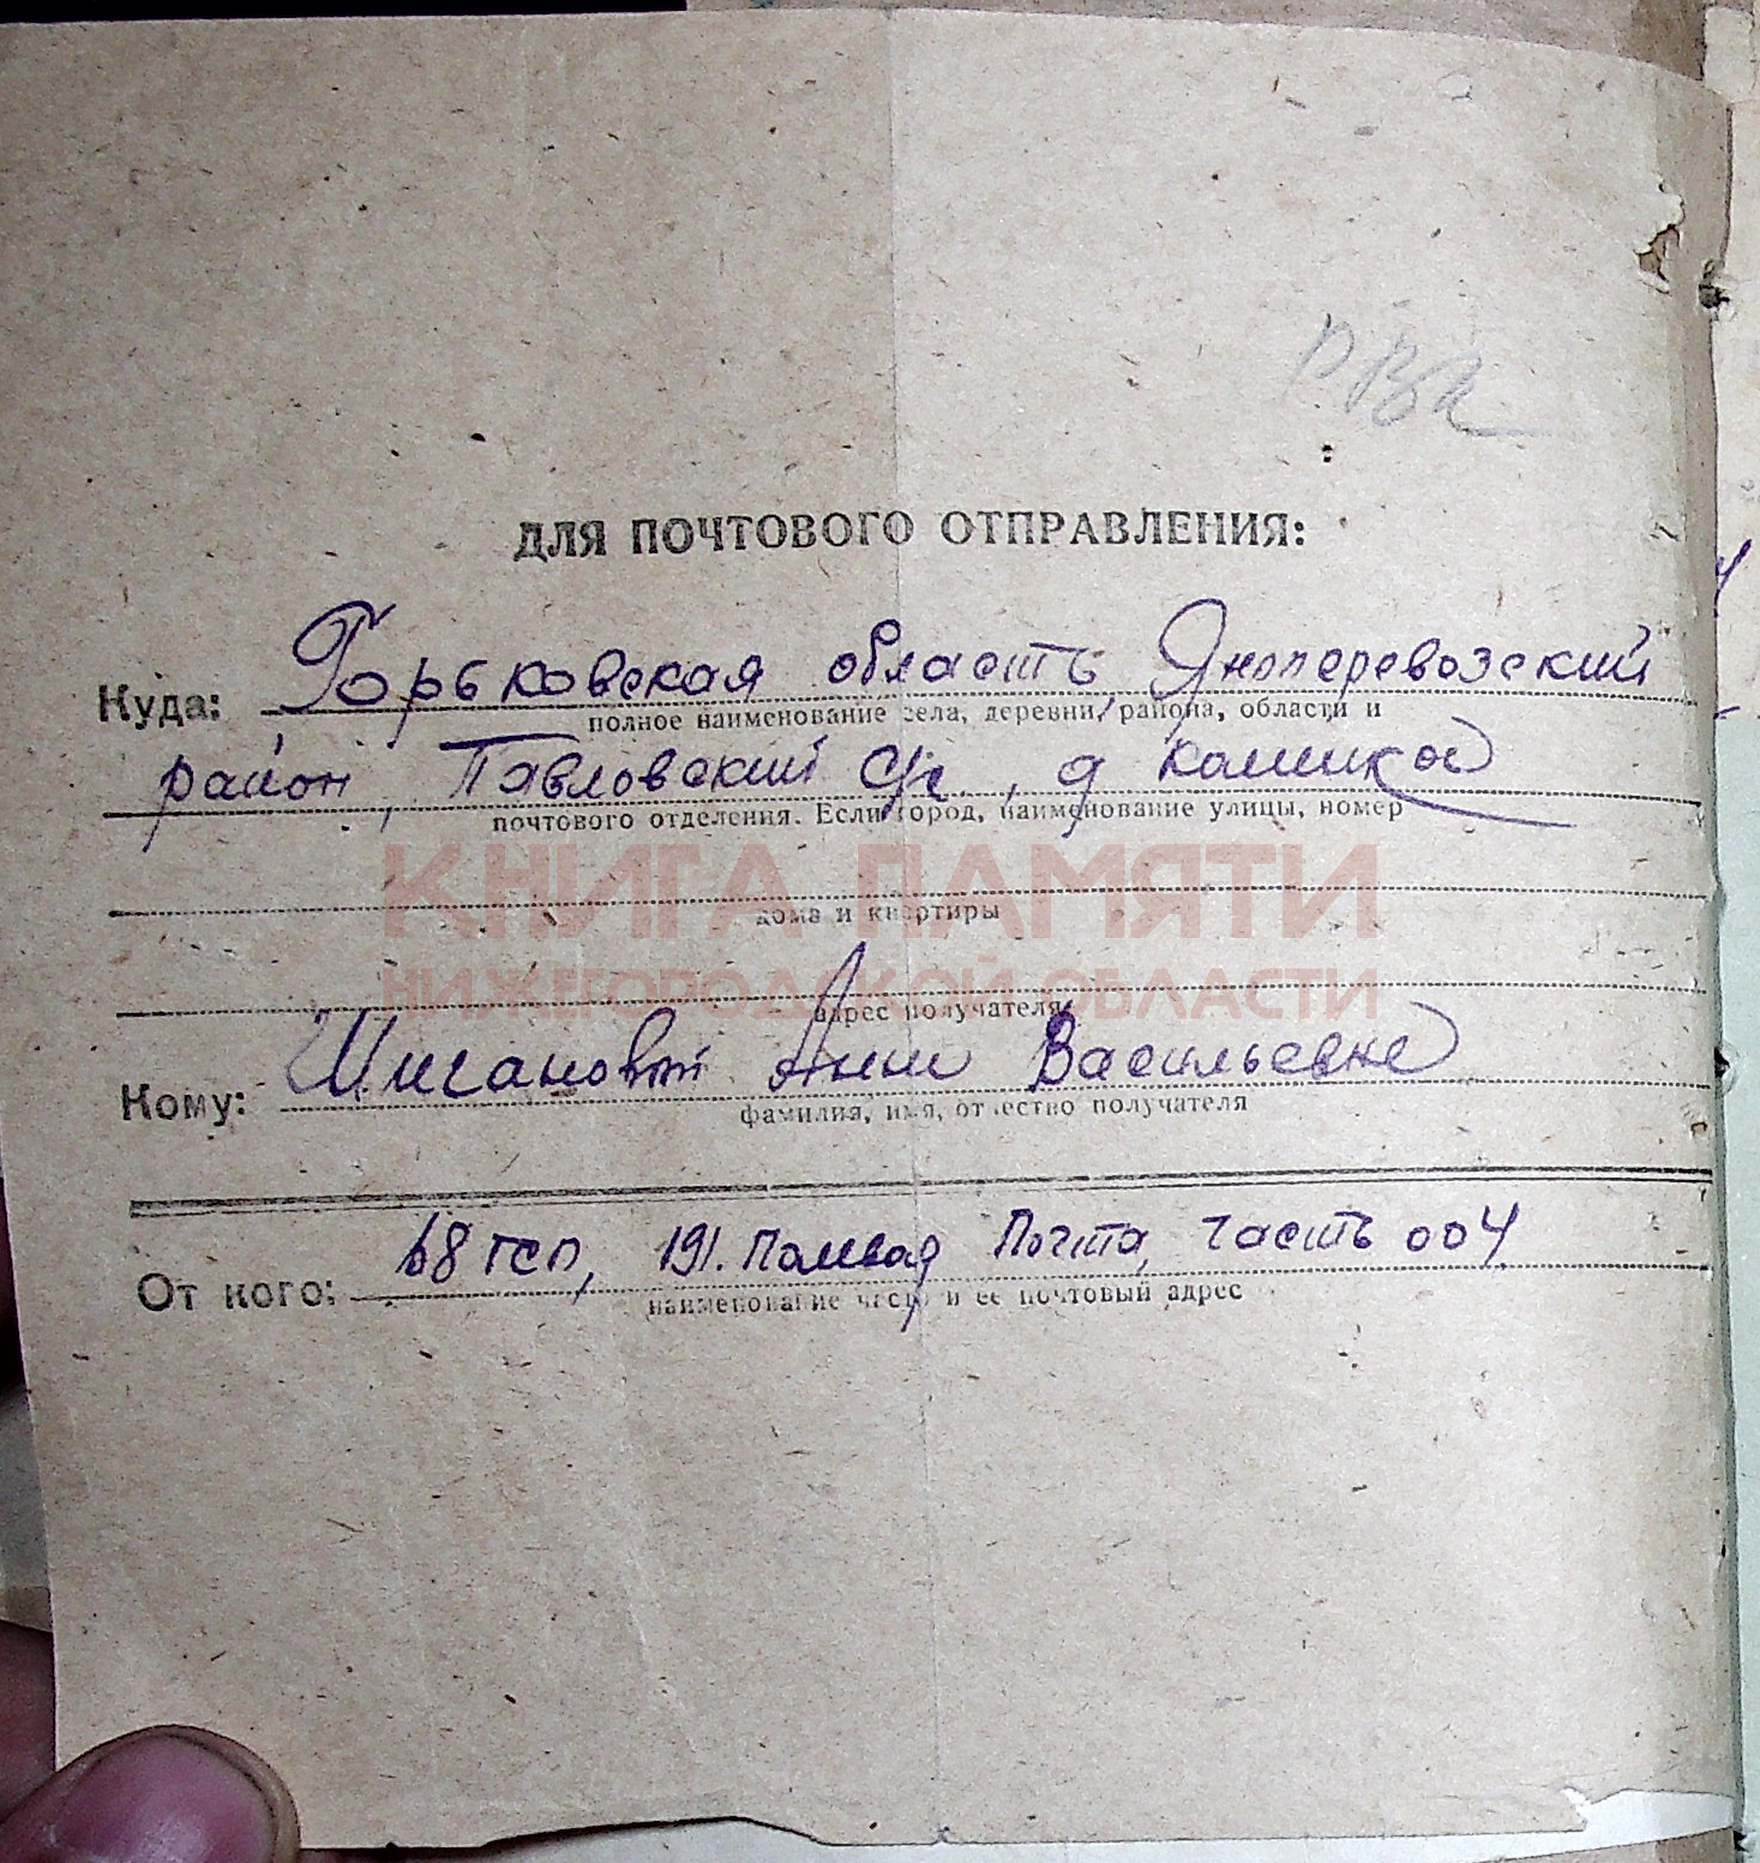 РВК
ДЛЯ ПОЧТОВОГО ОТПРАВЛЕНИЯ:
Куда: Горьковская область, Яноперевозский
полное наименование села, деревни, района, области и
район, Павловский с/с, д
почтового отделения. Если город, наименование улицы, номер
КНИГА ПАМЯТИ
дома и квартиры
НИЖЕГОРОДСКОЙ ОБЛАСТИ
адрес получателя
Кому: Шигановой Анне Васильевне
фамилия, имя, отчество получателя
От кого: 68 ГСП, 191. Почта, часть 004
наименование части и ее почтовый адрес